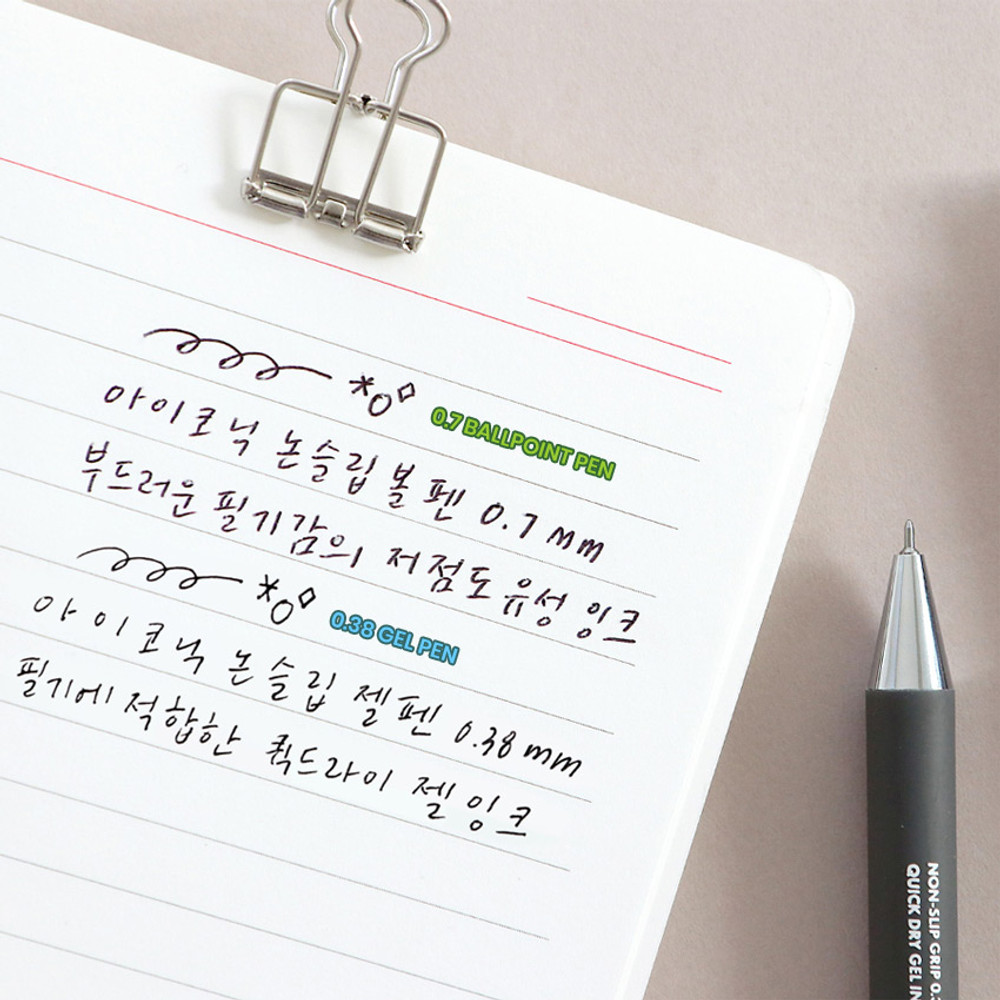 0.7 BALLPOINT PEN
아이코닉 논슬립 볼펜 0.7 mm
부드러운 필기감의 저점도 유성 잉크
0.38 GEL PEN
아이코닉 논슬립 젤펜 0.38 mm
필기에 적합한 퀵드라이 젤 잉크
NON-SLIP GRIP 0.
QUICK DRY GEL IN